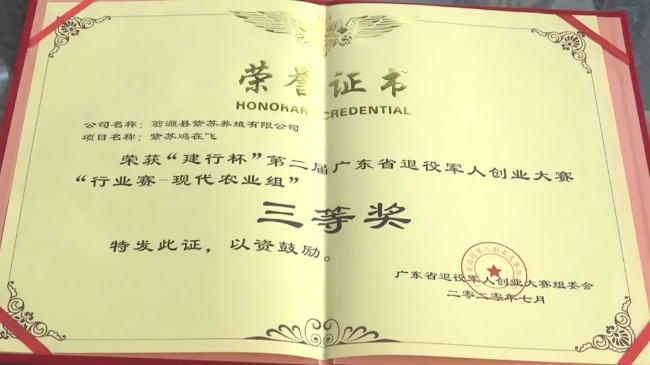 荣誉证书
HONORARY CREDENTIAL
公司名称：翁源县紫苏养殖有限公司
项目名称：紫苏鸡在飞
荣获“建行杯”第二届广东省退役军人创业大赛
“行业赛-现代农业组”
三等奖
特发此证，以资鼓励。
广东省退役军人创业大赛组委会
二〇二〇年七月